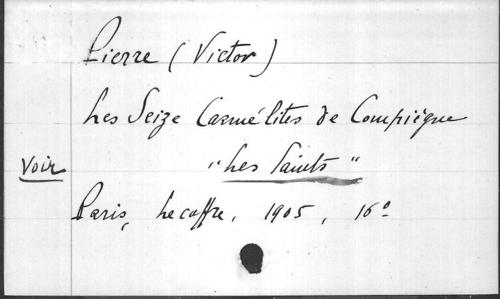 Pierre (Victor)
Les Seize Carmélites de Compiègne
Voir "Les Saints"
Paris, Lecoffre, 1905, 16°